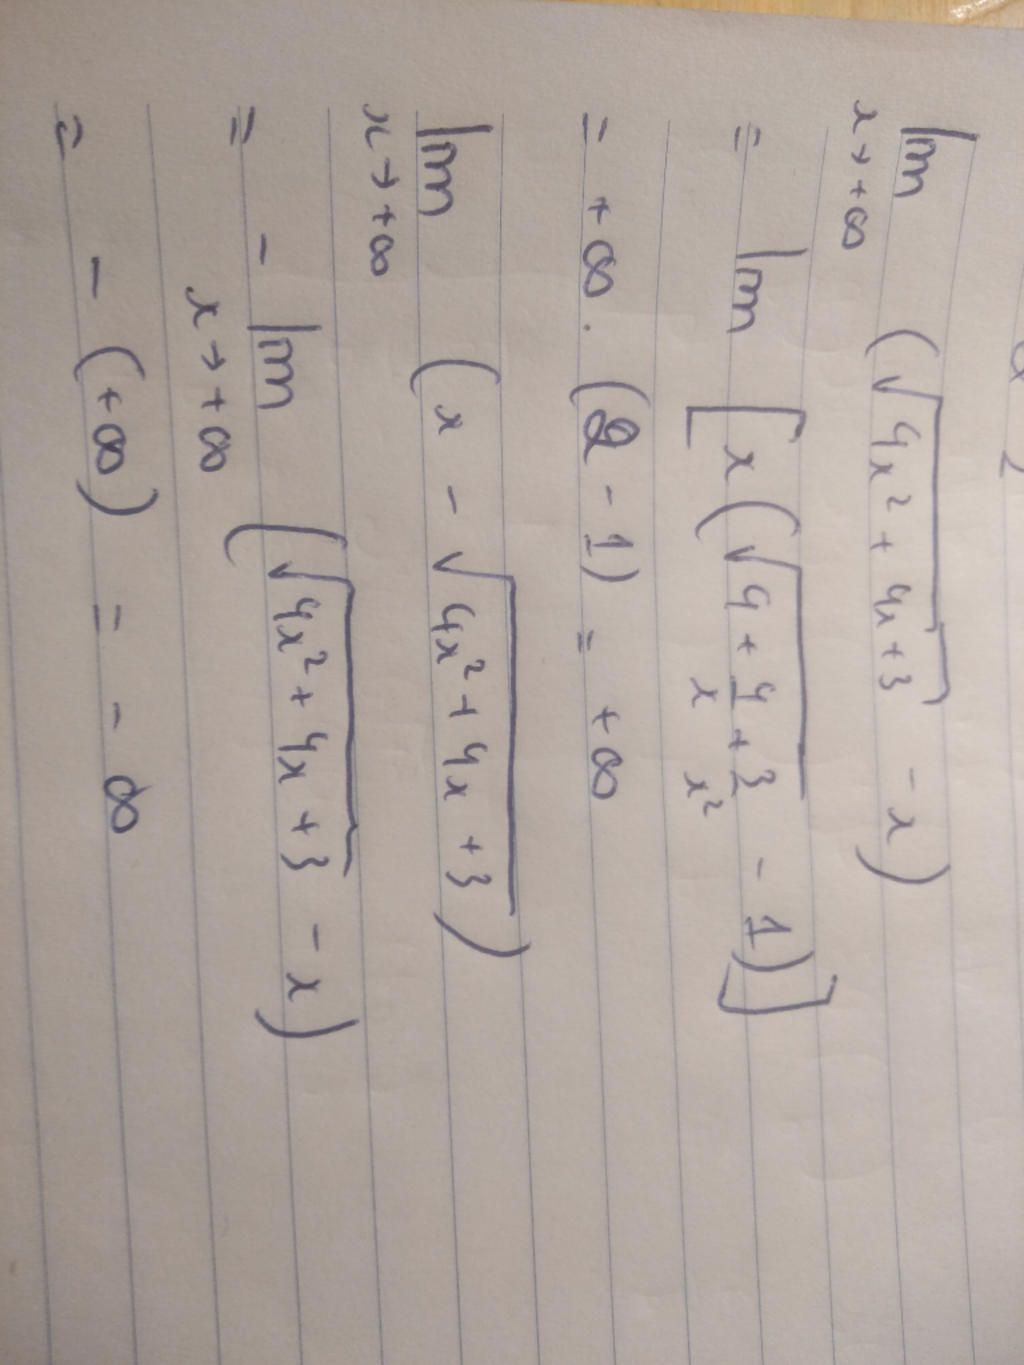 lim (√4x² + 4x + 3 - x)
x → +∞
= lim [x (√4 + 4/x + 3/x² - 1)]
= +∞ . (2 - 1) = +∞
lim (x - √4x² + 4x + 3)
x → +∞
= - lim (√4x² + 4x + 3 - x)
x → +∞
= - (+∞) = - ∞